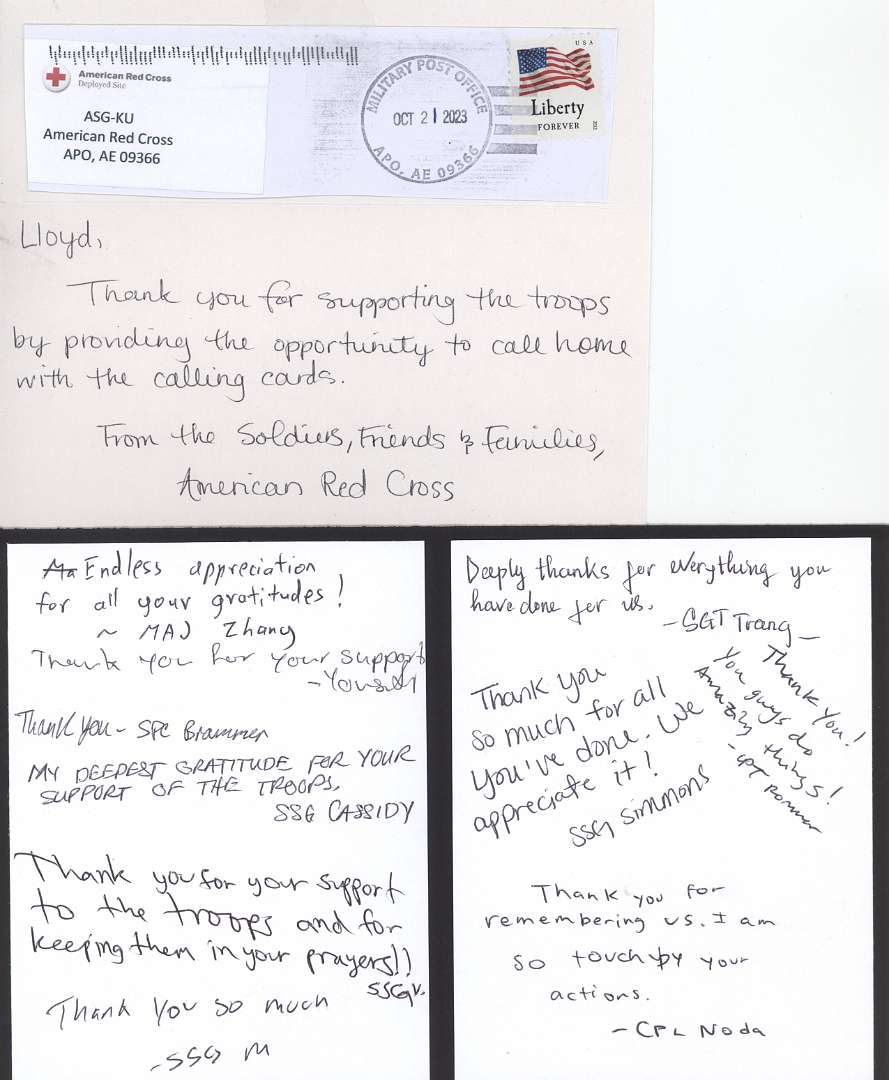 American Red Cross
Deployed Site
ASG-KU
American Red Cross
APO, AE 09366
MILITARY POST OFFICE
OCT 21 2023
APO, AE 09366
USA
Liberty
FOREVER
2012
Lloyd,
Thank you for supporting the troops
by providing the opportunity to call home
with the calling cards.
From the Soldiers, Friends & Families,
American Red Cross
Ma Endless appreciation
for all your gratitudes!
~ MAJ Zhang
Thank you for your support
Thank you - SPC Brammer
MY DEEPEST GRATITUDE FOR YOUR
SUPPORT OF THE TROOPS.
SSG CASSIDY
Thank you for your support
to the troops and for
keeping them in your prayers!!
SSG V.
Thank you so much
-SSG M
Deeply thanks for everything you
have done for us.
-SGT Trang-
Thank you
so much for all
you've done. We
appreciate it!
SSG Simmons
Thank you!
You guys do
Amazing things!
Thank you for
remembering us. I am
so touch by your
actions.
-CPL Noda